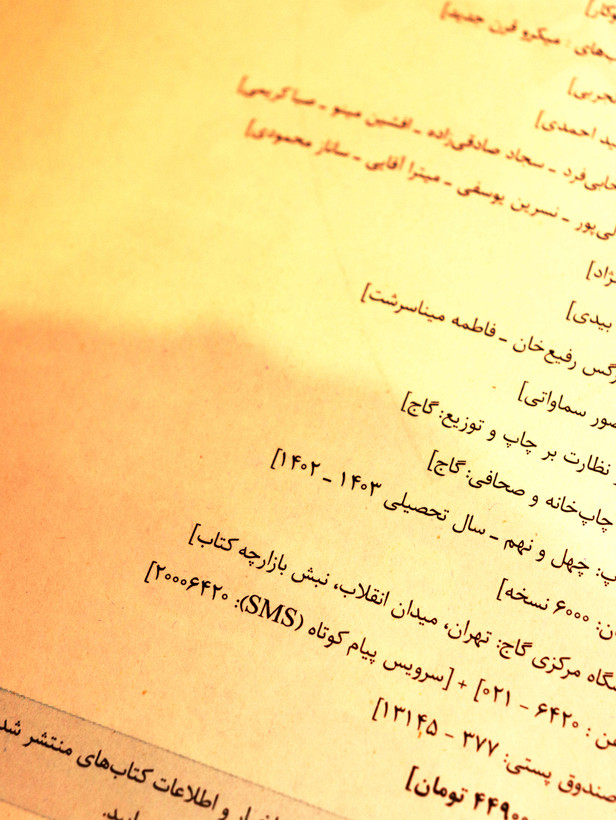 میکرو قرن جدید]
احمدی]
سجاد صادقی‌زاده - افشین مینو - صبا کریمی]
نسرین یوسفی - میترا آقایی - ساناز محمودی]
بیدی]
رفیع‌خان - فاطمه میناسرشت]
سماواتی]
نظارت بر چاپ و توزیع: گاج]
چاپ‌خانه و صحافی: گاج]
چهل و نهم - سال تحصیلی ۱۴۰۳ - ۱۴۰۲]
۶۰۰۰ نسخه]
مرکزی گاج: تهران، میدان انقلاب، نبش بازارچه کتاب]
۶۴۲۰ - ۰۲۱] + [سرویس پیام کوتاه (SMS): ۲۰۰۰۶۴۲۰]
صندوق پستی: ۳۷۷ - ۱۳۱۴۵]
تومان]
و اطلاعات کتاب‌های منتشر